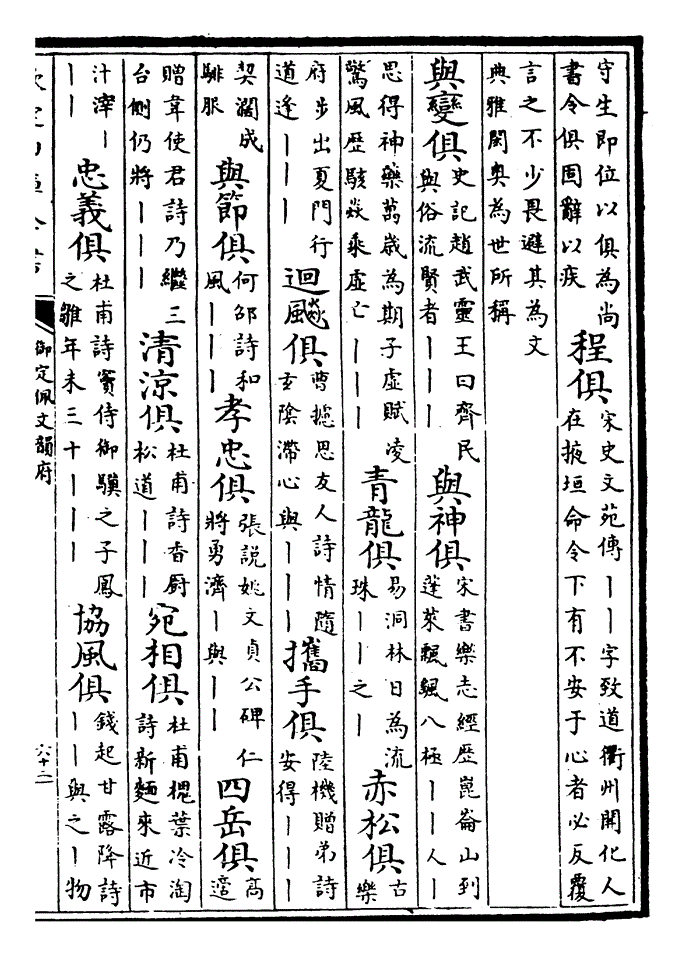 守生即位以俱為尚
書令俱固辭以疾
程俱
宋史文苑傳丨丨字致道衢州開化人
在掖垣命令下有不安于心者必反覆
言之不少畏避其為文
典雅閎奥為世所稱
與變俱
史記趙武靈王曰齊民
與俗流賢者丨丨丨
與神俱
宋書樂志經歴崑崙山到
蓬萊飄飄八極丨丨人丨
思得神藥萬歳為期子虛賦凌
驚風歴駭猋乘虛亡丨丨丨
青龍俱
易洞林日為流
珠丨丨之丨
赤松俱
古
樂
府步出夏門行
道逢丨丨丨
迴飈俱
曹摅思友人詩情隨
玄陰滯心與丨丨丨
攜手俱
陸機贈弟詩
安得丨丨丨
契濶成
騑服
與節俱
何邵詩和
風丨丨丨
孝忠俱
張說姚文貞公碑仁
將勇濟丨與丨丨
四岳俱
高
適
贈韋使君詩乃繼三
台側仍將丨丨丨
清涼俱
杜甫詩香厨
松道丨丨丨
宛相俱
杜甫槐葉冷淘
詩新麵來近市
汁滓丨
丨丨
忠義俱
杜甫詩竇侍御驥之子鳳
之雛年未三十丨丨丨
協風俱
錢起甘露降詩
丨丨與之丨物
欽定四庫全書
御定佩文韻府
六十二